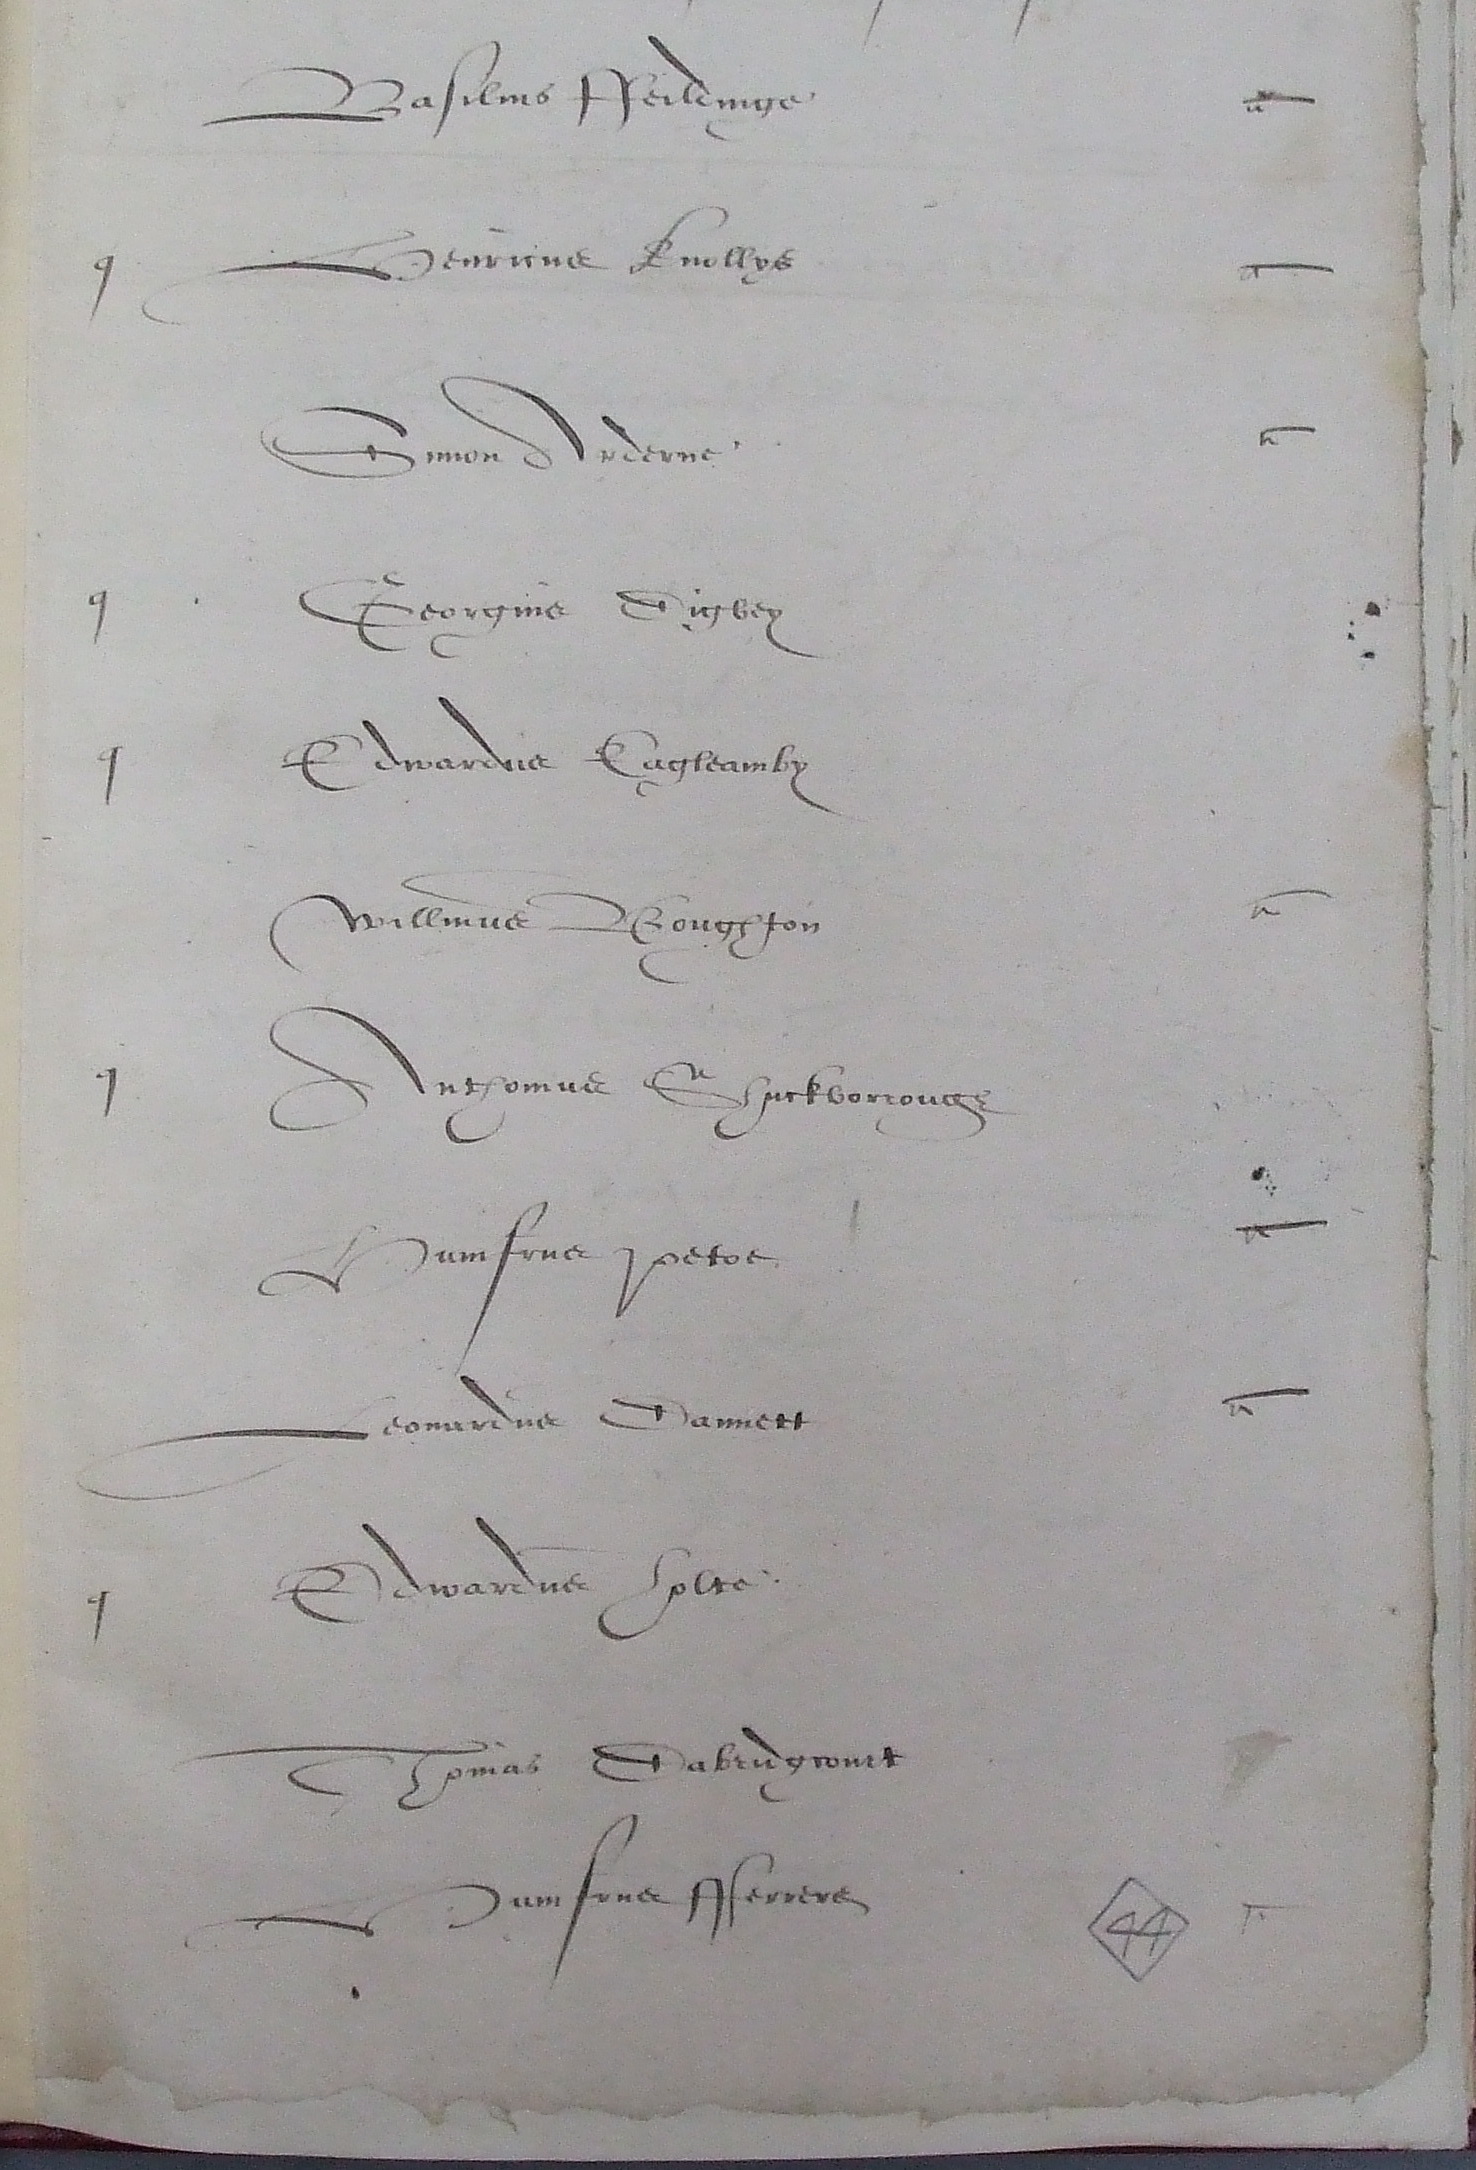 Basilius ffeildinge
q Henricus Knollys
Simon Arderne
q Georgius Digbey
q Edwardus Eagleamby
Willmus Boughton
q Anthonius Shuckborrough
Humfrus Petoe
Leonardus Dannett
q Edwardus Holte
Thomas Dabridgcourt
Humfrus fferrers
44